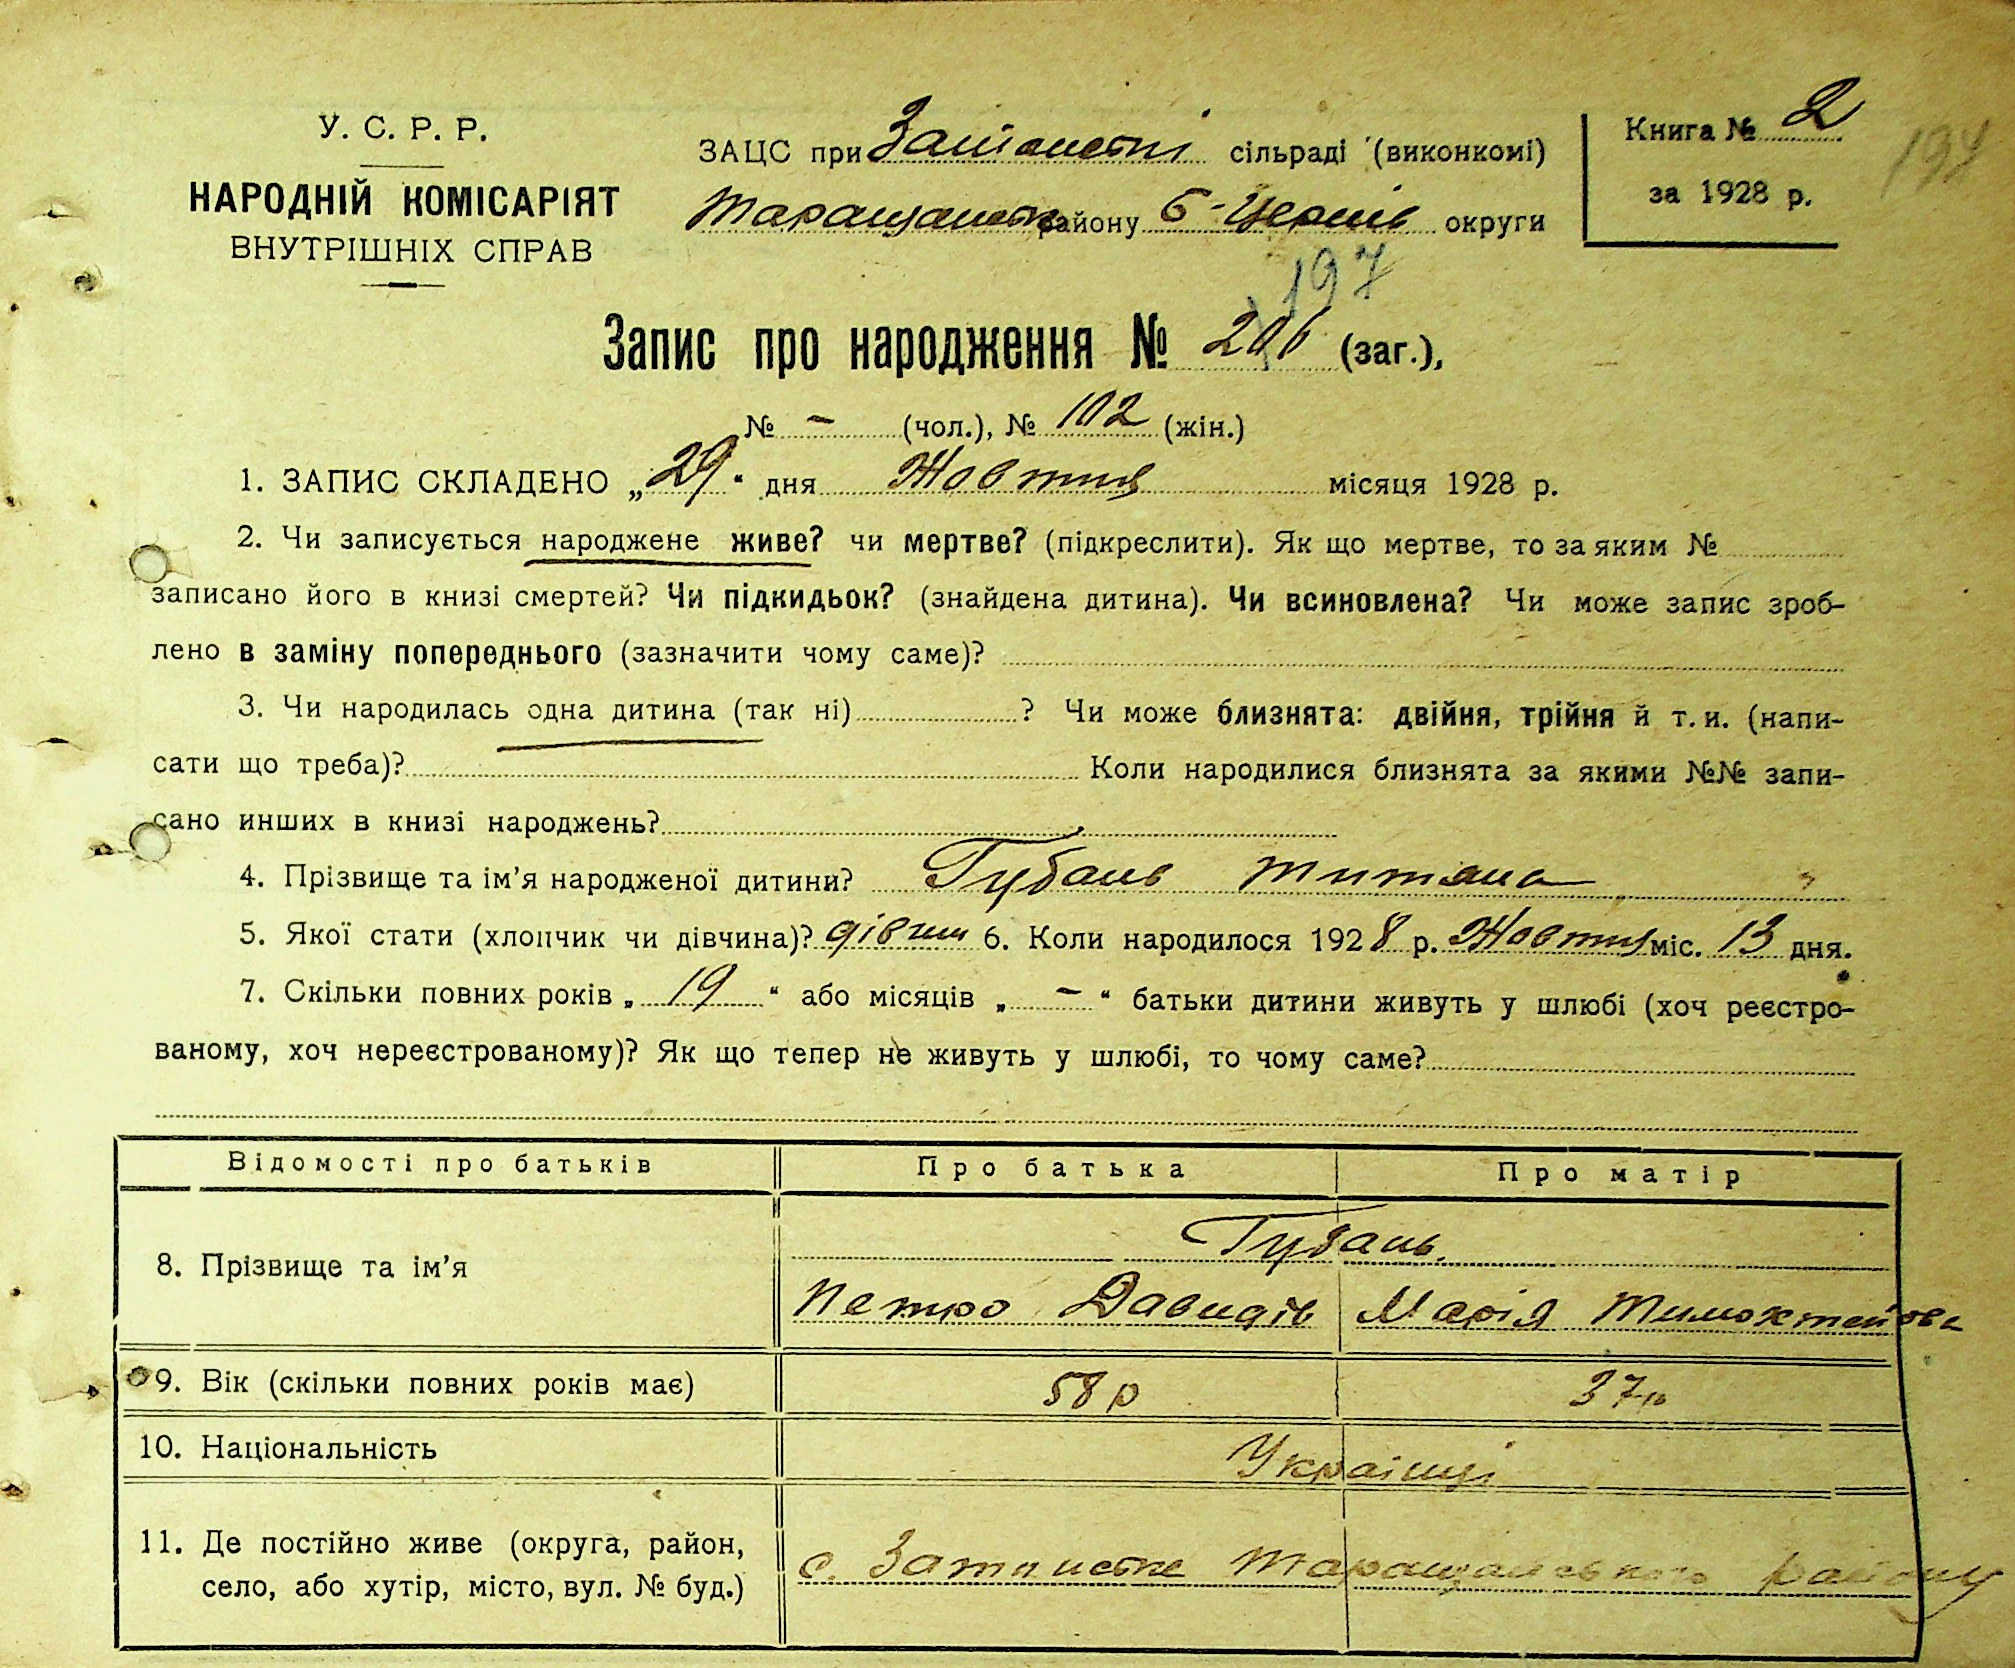 У. С. Р. Р.
НАРОДНІЙ КОМІСАРІЯТ
ВНУТРІШНІХ СПРАВ
ЗАЦС при сільраді (виконкомі)
Таращанськ району Б-Церків округи
Книга № 2
за 1928 р.
194
197
Запис про народження № 206 (заг.),
№ - (чол.), № 102 (жін.)
1. ЗАПИС СКЛАДЕНО „29“ дня Жовтня місяця 1928 р.
2. Чи записується народжене живе? чи мертве? (підкреслити). Як що мертве, то за яким №
записано його в книзі смертей? Чи підкидьок? (знайдена дитина). Чи всиновлена? Чи може запис зроб-
лено в заміну попереднього (зазначити чому саме)?
3. Чи народилась одна дитина (так ні) ? Чи може близнята: двійня, трійня й т. и. (напи-
сати що треба)? Коли народилися близнята за якими №№ запи-
сано инших в книзі народжень?
4. Прізвище та ім’я народженої дитини? Губань Титяна
5. Якої стати (хлопчик чи дівчина)? дівчин 6. Коли народилося 1928 р. Жовтня міс. 13 дня.
7. Скільки повних років „ 19 “ або місяців „ - “ батьки дитини живуть у шлюбі (хоч реєстро-
ваному, хоч нереєстрованому)? Як що тепер не живуть у шлюбі, то чому саме?
Відомості про батьків Про батька Про матір
8. Прізвище та ім’я Губань.
Петро Давидів Марія Тимохтейова
9. Вік (скільки повних років має) 58 р 37 р
10. Національність Українці
11. Де постійно живе (округа, район,
село, або хутір, місто, вул. № буд.) с. Таращанського району